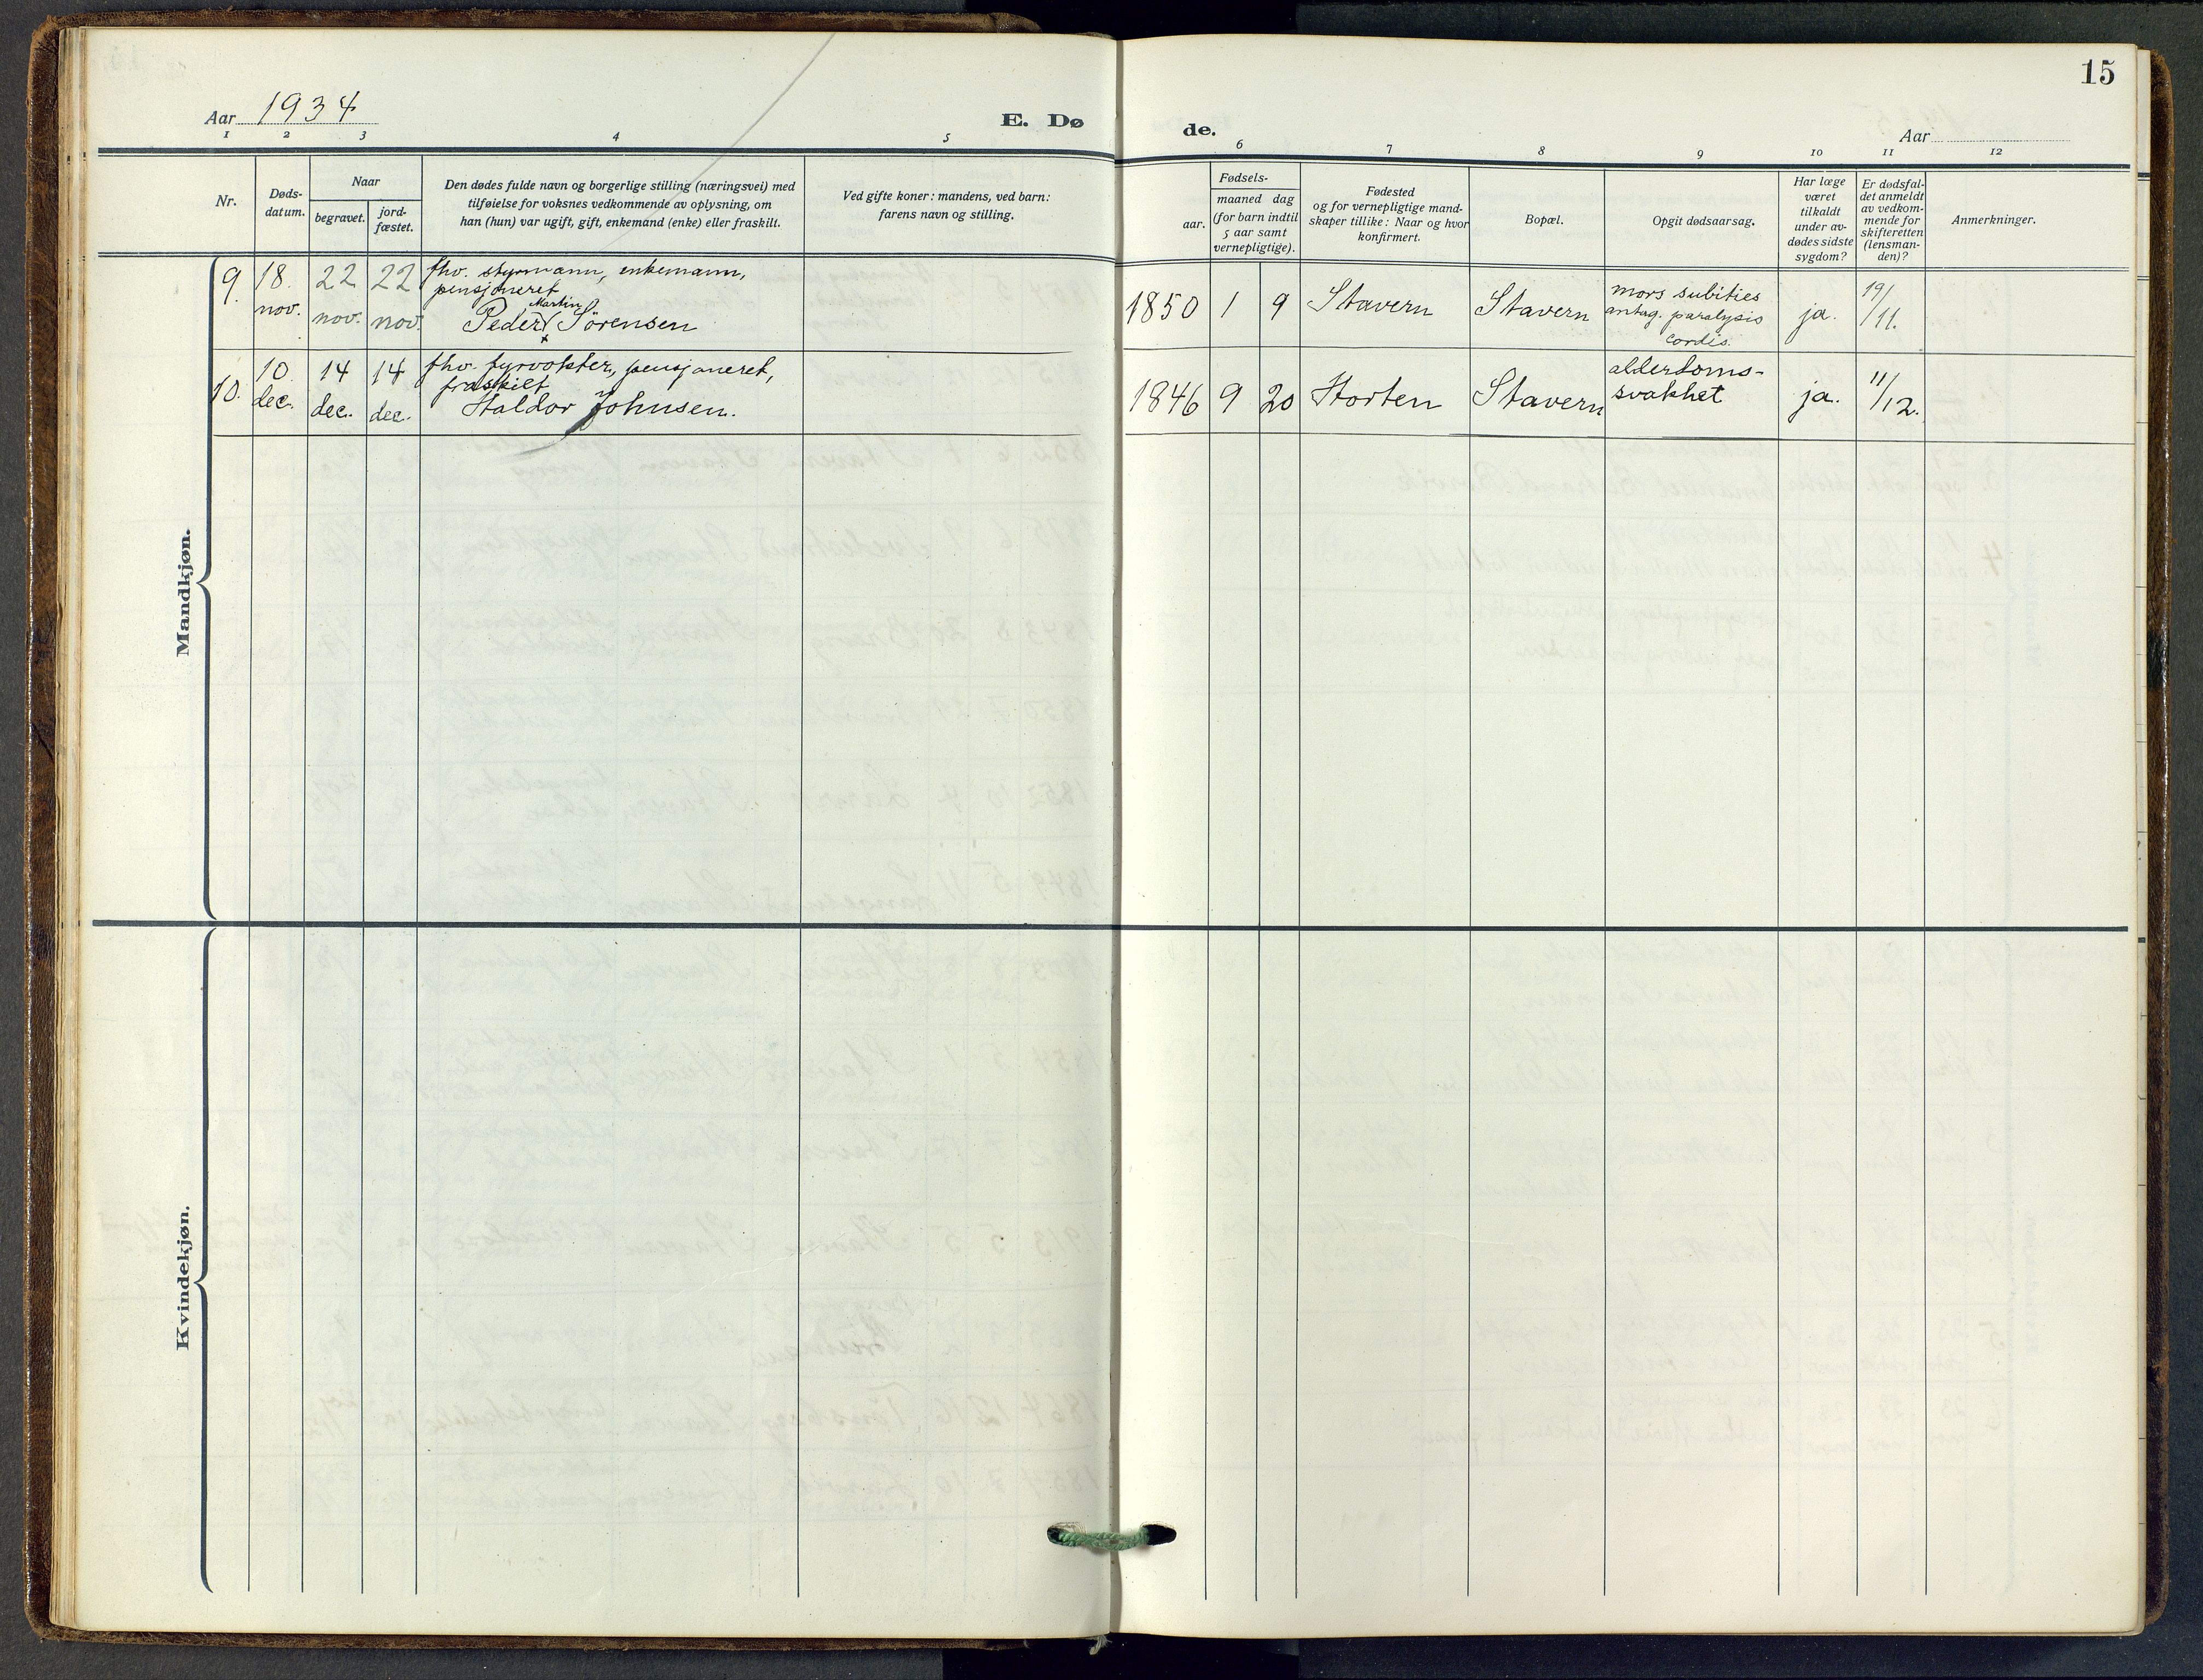 15
Aar 1934
E. Dø
de.
Aar
1 2 3 4 5 6 7 8 9 10 11 12
Nr.
Døds-
datum.
Naar
begravet.
jord-
fæstet.
Den dødes fulde navn og borgerlige stilling (næringsvei) med
tilføielse for voksnes vedkommende av oplysning, om
han (hun) var ugift, gift, enkemand (enke) eller fraskilt.
Ved gifte koner: mandens, ved barn:
farens navn og stilling.
Fødsels-
aar.
maaned dag
(for barn indtil
5 aar samt
vernepligtige).
Fødested
og for vernepligtige mand-
skaper tillike: Naar og hvor
konfirmert.
Bopæl.
Opgit dødsaarsag.
Har læge
været
tilkaldt
under av-
dødes sidste
sygdom?
Er dødsfal-
det anmeldt
av vedkom-
mende for
skifteretten
(lensman-
den)?
Anmerkninger.
Mandkjøn.
9.
18.
nov.
22
nov.
22
nov.
fhv. styrmann, enkemann,
pensjoneret
Martin
Peder Sörensen
1850 1 9
Stavern
Stavern
mors subities
antag. paralysis
cordis.
ja.
19/11.
10.
10.
dec.
14
dec.
14
dec.
fhv. fyrvokter, pensjoneret,
fraskilt
Haldor Johnsen.
1846 9 20
Horten
Stavern
alderdoms-
svakhet
ja.
11/12.
Kvindekjøn.